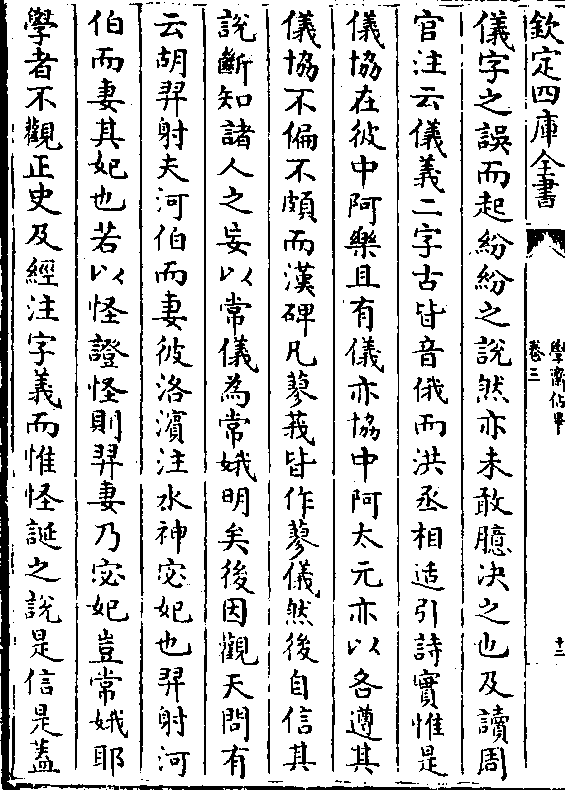 欽定四庫全書
學齋佔畢
卷三
十二
儀字之誤而起紛紛之說然亦未敢臆決之也及讀周
官注云儀義二字古皆音俄而洪丞相适引詩實惟是
儀協在彼中阿樂且有儀亦協中阿太元亦以各遵其
儀協不偏不頗而漢碑凡蓼莪皆作蓼儀然後自信其
說斷知諸人之妄以常儀為常娥明矣後因觀天問有
云胡羿射夫河伯而妻彼洛濱注水神宓妃也羿射河
伯而妻其妃也若以怪證怪則羿妻乃宓妃豈常娥耶
學者不觀正史及經注字義而惟怪誕之說是信是蓋